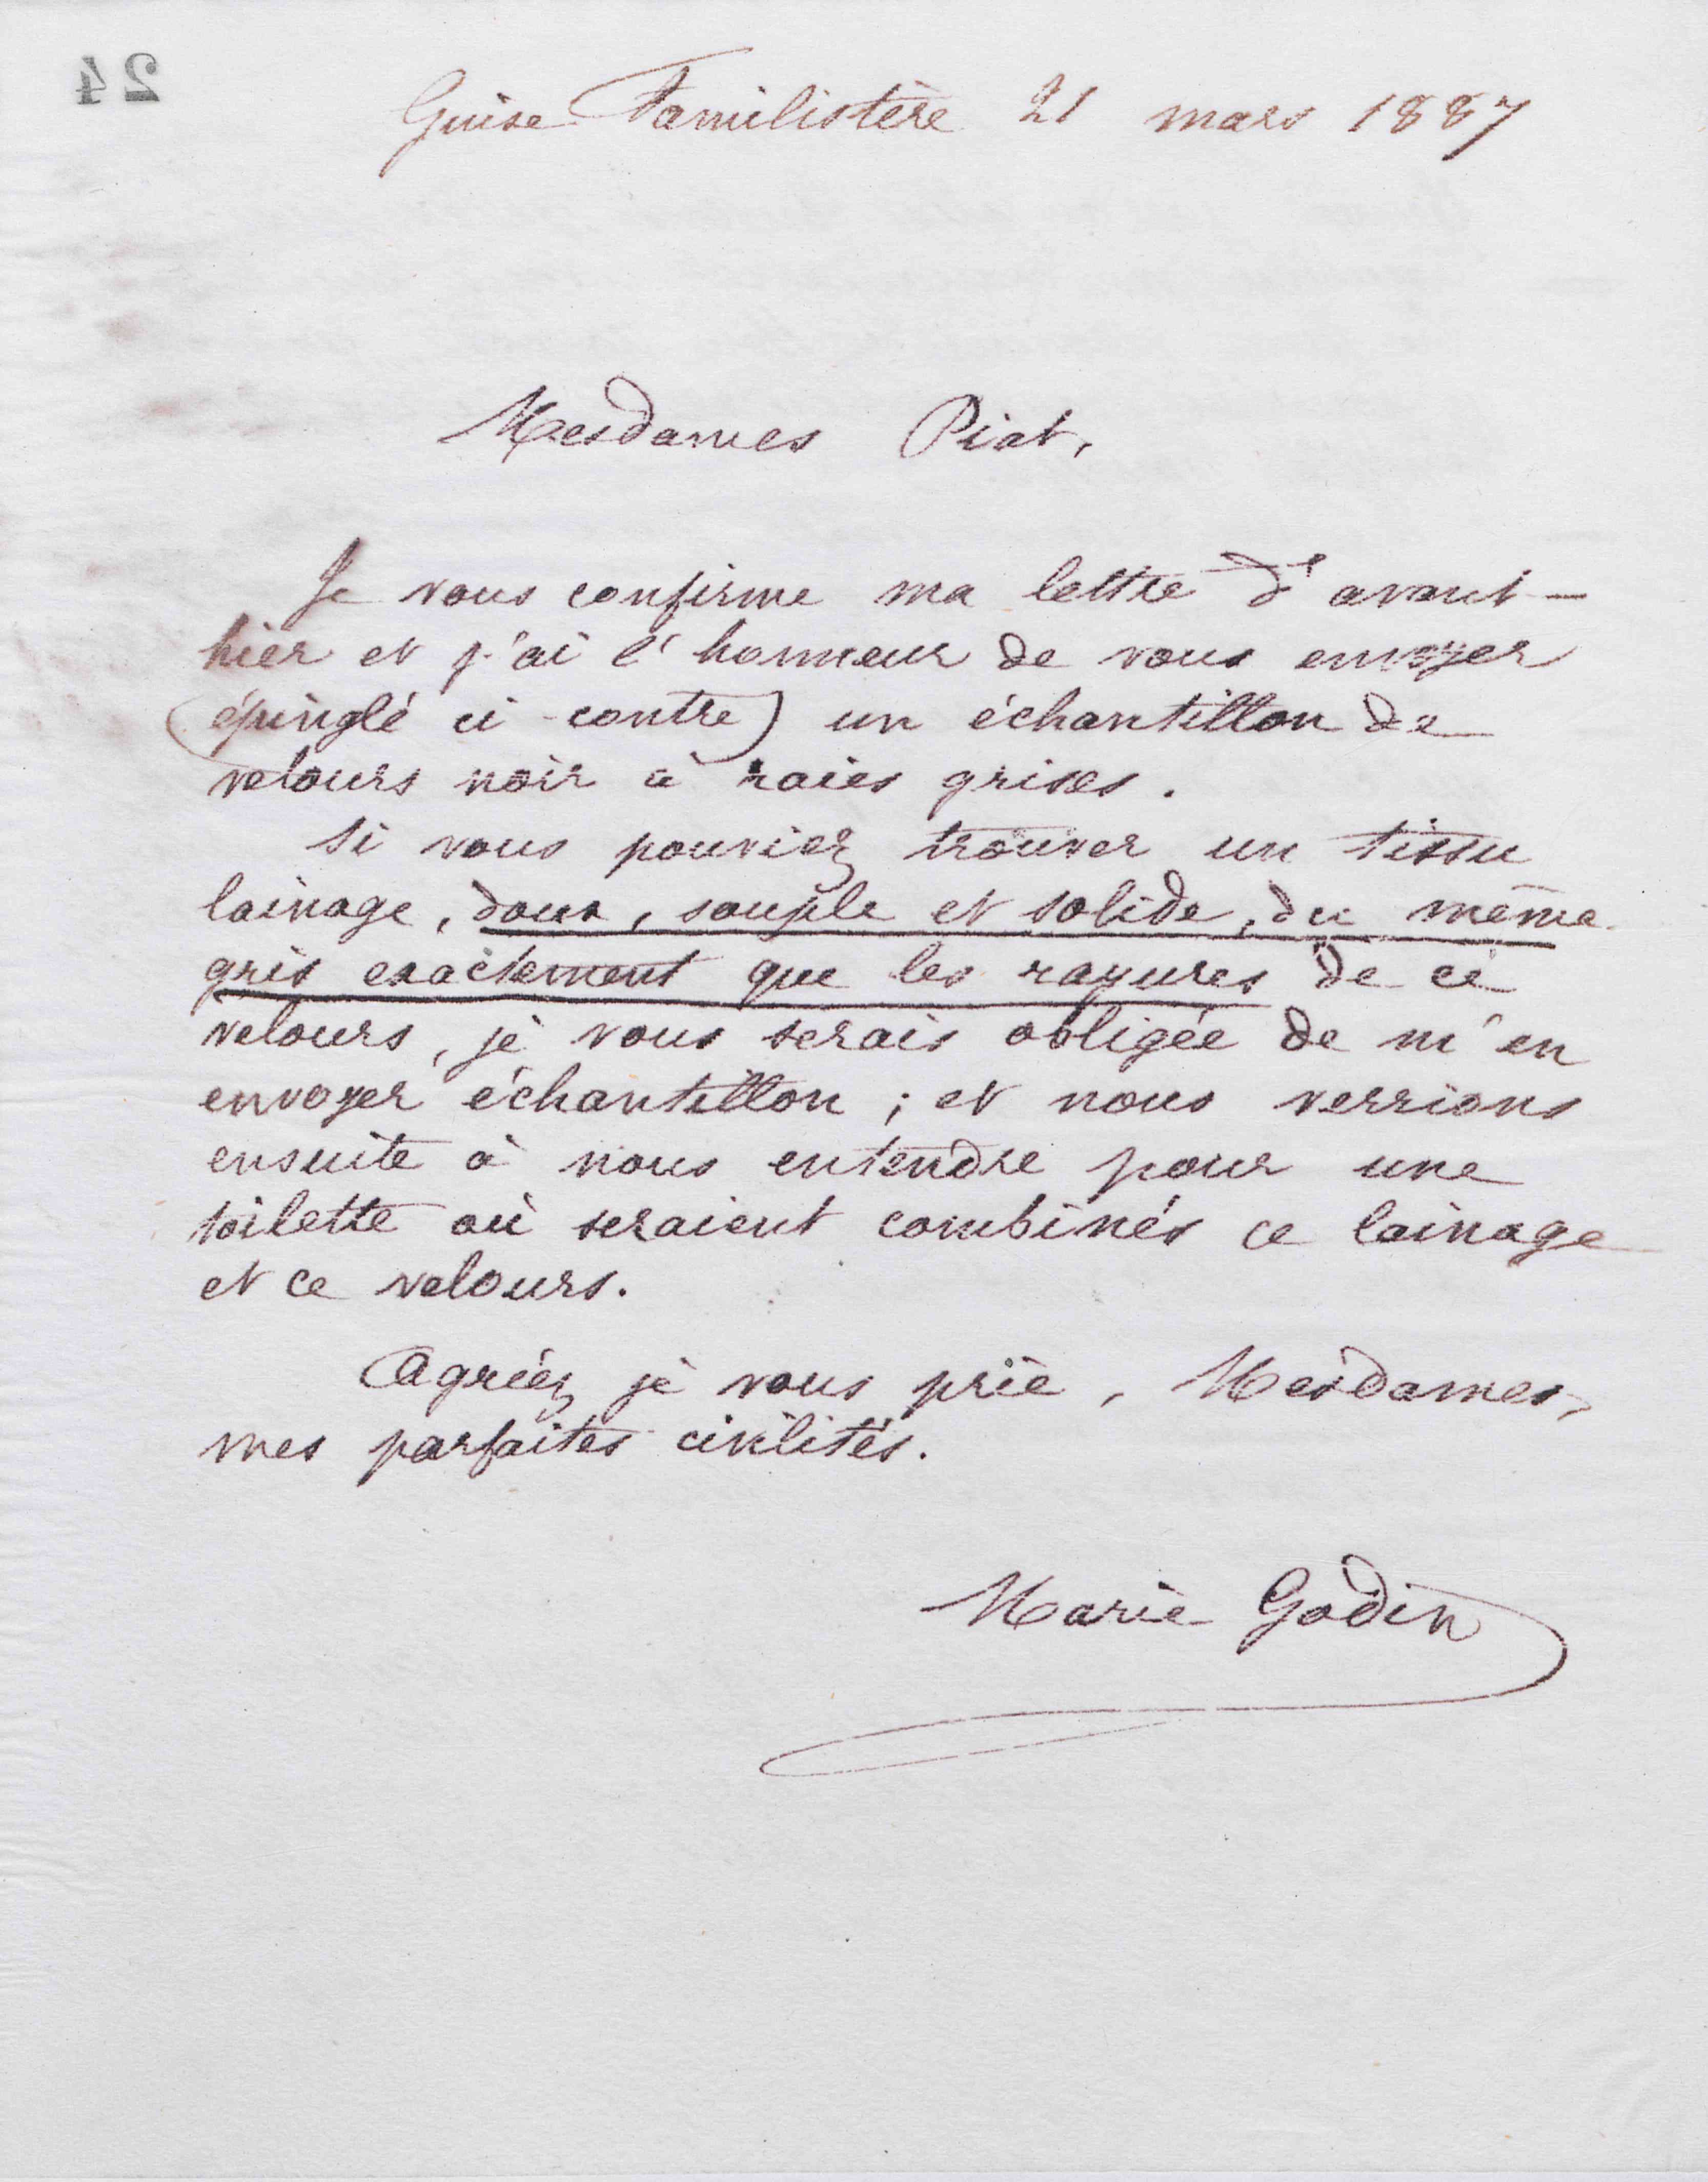 24
Guise Familistère 21 mars 1887
Mesdames Piat,
Je vous confirme ma lettre d'avant-
hier et j'ai l'honneur de vous envoyer
(épinglé ci-contre) un échantillon de
velours noir à raies grises.
Si vous pouviez trouver un tissu
lainage, doux, souple et solide, du même
gris exactement que les rayures de ce
velours, je vous serais obligée de m'en
envoyer échantillon ; et nous verrions
ensuite à nous entendre pour une
toilette où seraient combinés ce lainage
et ce velours.
Agréez je vous prie, Mesdames,
mes parfaites civilités.
Marie Godin